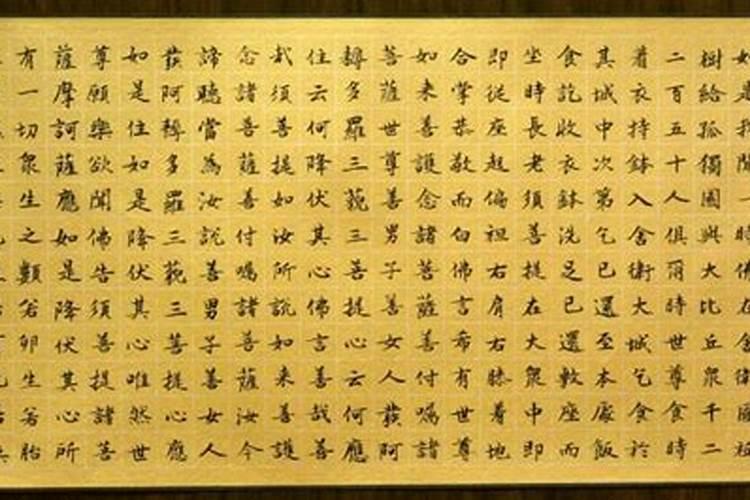 如是我聞一時佛在舍衛國祇
樹給孤獨園與大比丘衆千二
二百五十人俱爾時世尊食時
着衣持鉢入舍衛大城乞食於
其城中次第乞已還至本處飯
食訖收衣鉢洗足已還敷座而
坐時長老須菩提在大衆中即
即從座起偏袒右肩右膝着地
合掌恭敬而白佛言希有世尊
如来善護念諸菩薩善付囑諸
菩薩世尊善男子善女人發阿
耨多羅三藐三菩提心云何應
住云何降伏其心佛言善哉善
哉須菩提如汝所說如来善護
念諸菩薩善付囑諸菩薩汝今
諦聽當為汝說善男子善女人
發阿耨多羅三藐三菩提心應
如是住如是降伏其心唯然世
尊願樂欲聞佛告須菩提諸菩
薩摩訶薩應如是降伏其心所
有一切衆生之類若卵生若胎